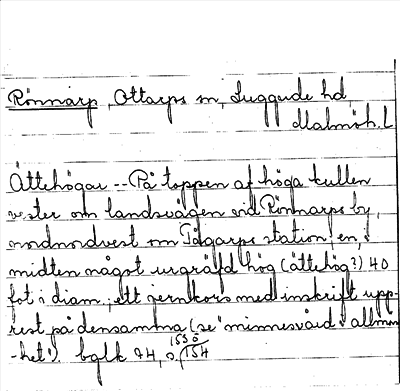 Rönnarp, Ottarps sn, Luggude hd,
Malmöh. L
Ättehögar -- På toppen af höga kullen
vester om landsvägen vid Rönnarps by,
nordnordvest om Tågarps station! en, i
midten något urgräfd hög (ättehög?) 40
fot i diam; ett jernkors med inskrift upp-
rest på densamma (se "minnesvård i allmän
-het"). bglk 94,
154